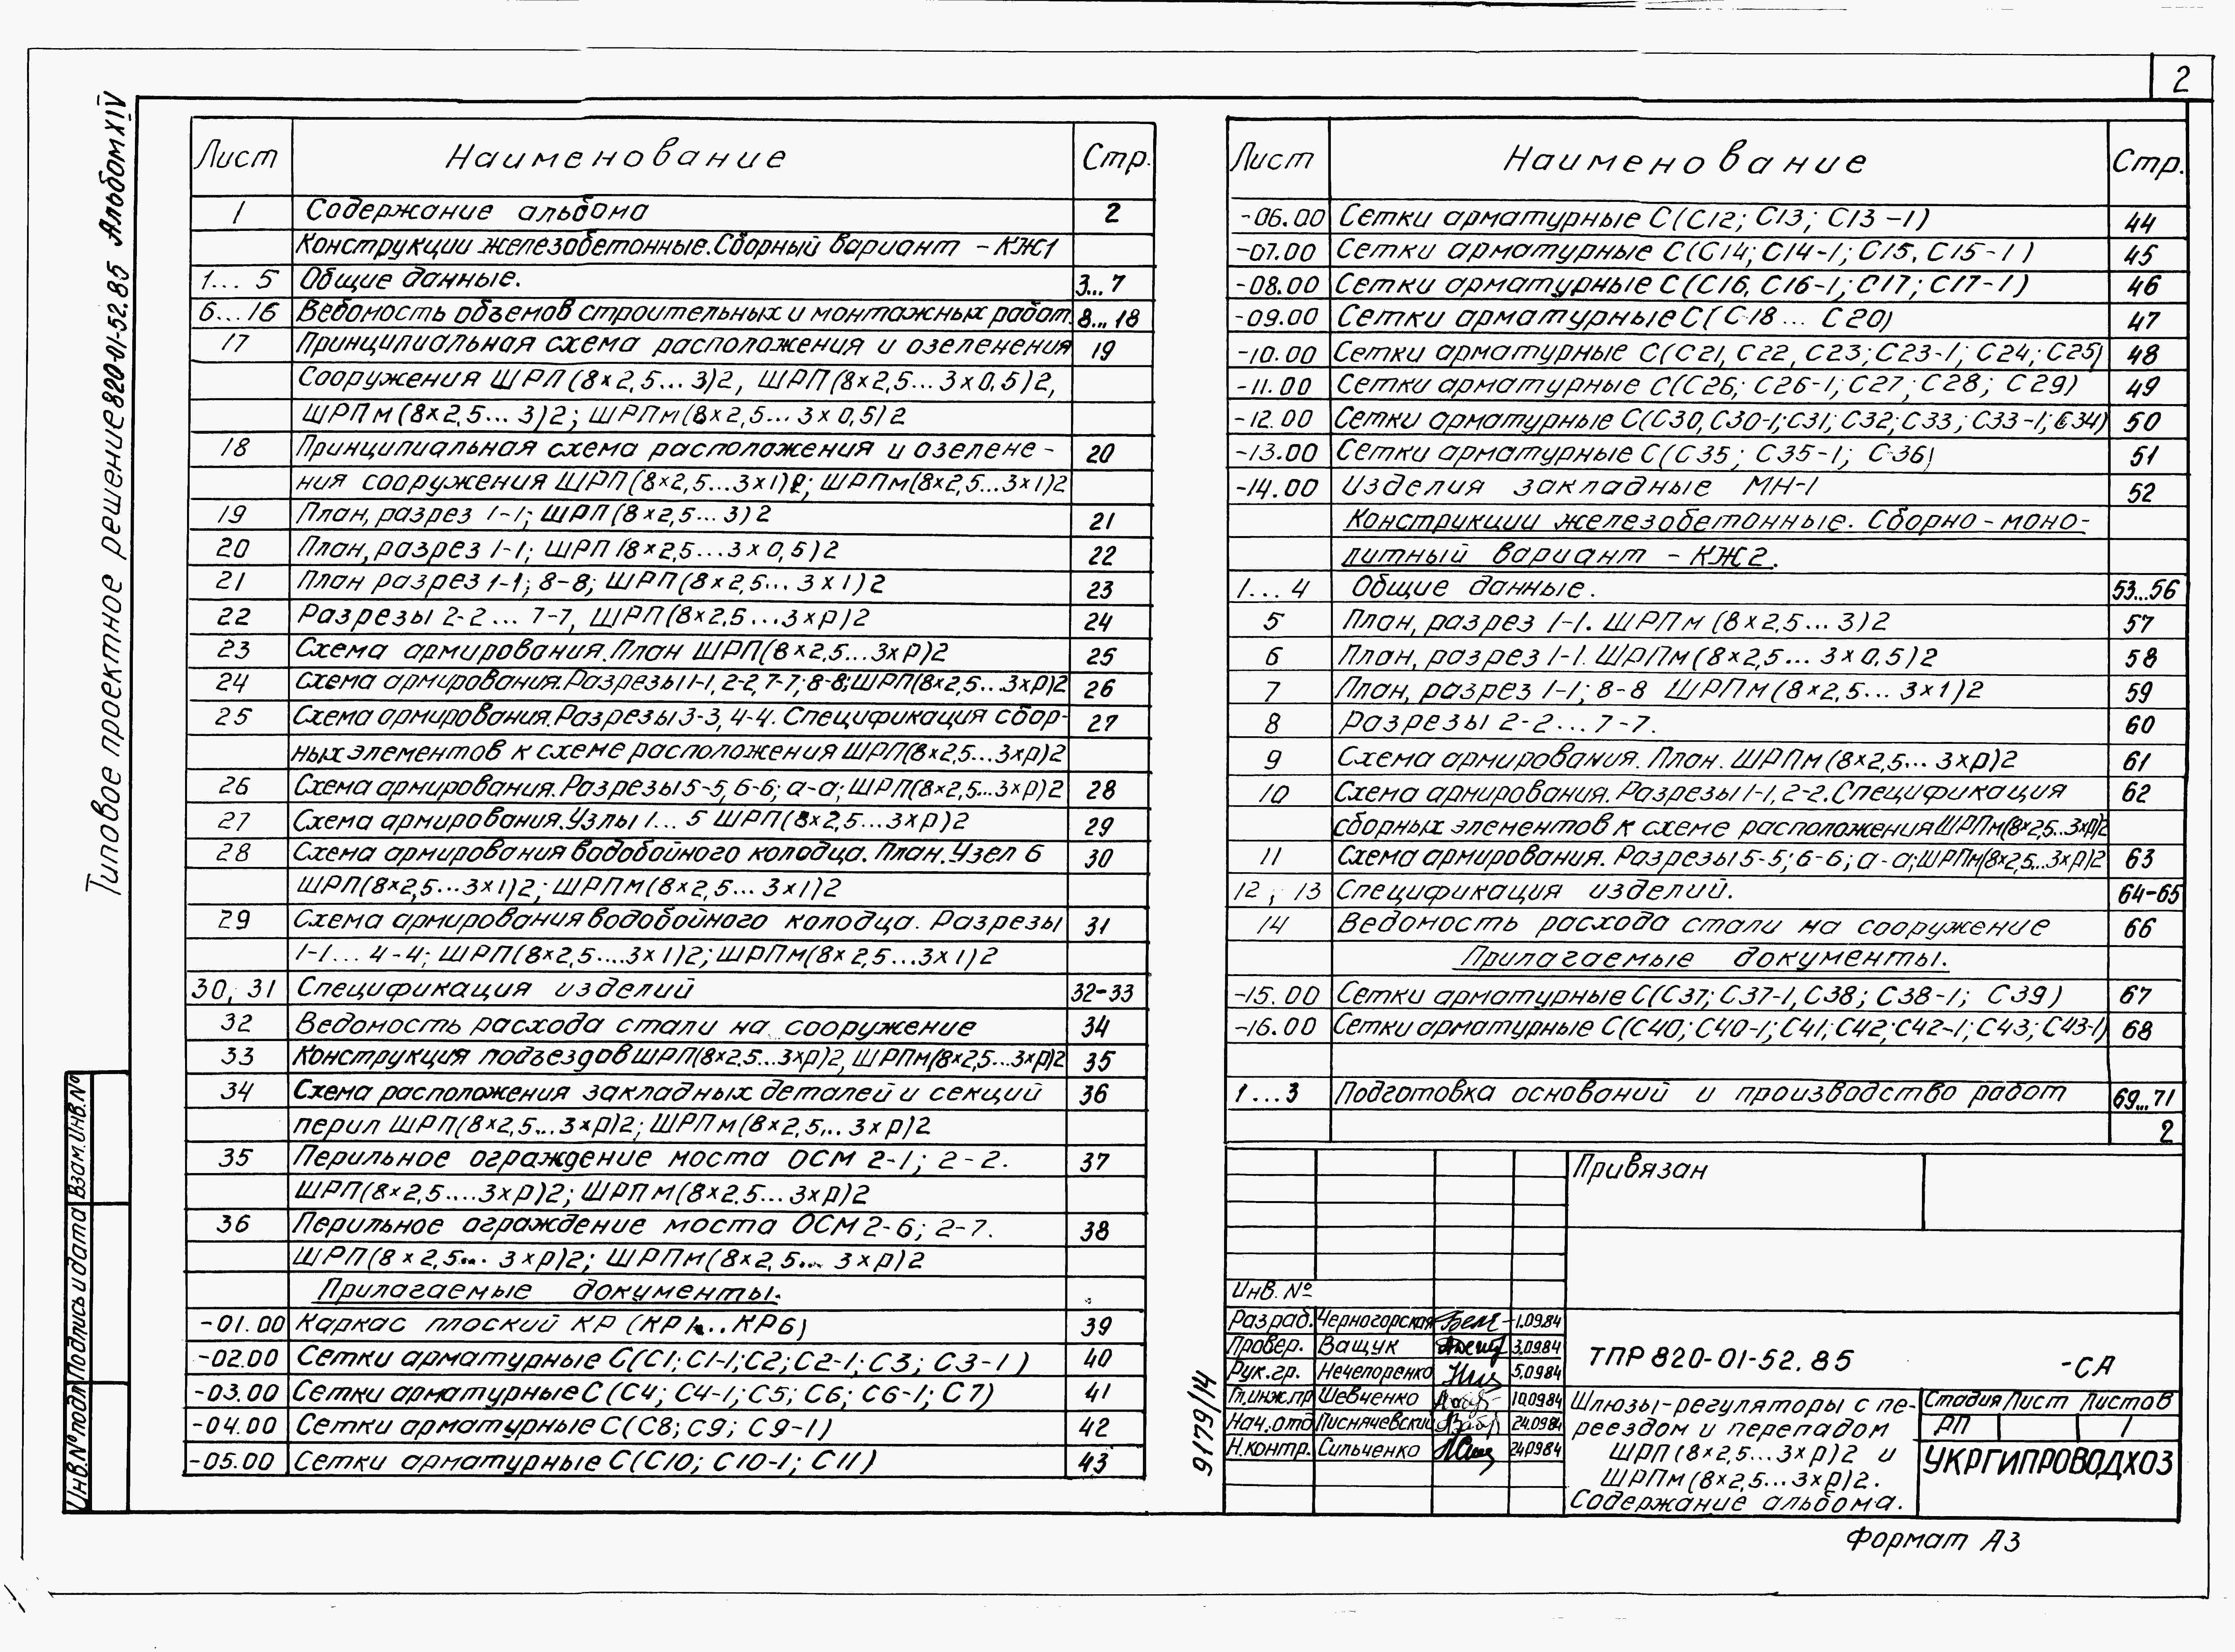 2
Типовое проектное решение 820-01-52.85 Альбом XIV
Лист Наименование Стр.
1 Содержание альбома 2
Конструкции железобетонные. Сборный вариант - КЖ1
1... 5 Общие данные. 3...7
6...16 Ведомость объемов строительных и монтажных работ. 8...18
17 Принципиальная схема расположения и озеленения 19
Сооружения ШРП(8×2,5...3)2, ШРП(8×2,5...3×0,5)2,
ШРПм(8×2,5...3)2; ШРПм(8×2,5...3×0,5)2
18 Принципиальная схема расположения и озелене- 20
ния сооружения ШРП(8×2,5...3×1)2; ШРПм(8×2,5...3×1)2
19 План, разрез 1-1; ШРП(8×2,5...3)2 21
20 План, разрез 1-1; ШРП(8×2,5...3×0,5)2 22
21 План разрез 1-1; 8-8; ШРП(8×2,5...3×1)2 23
22 Разрезы 2-2... 7-7, ШРП(8×2,5...3×р)2 24
23 Схема армирования. План ШРП(8×2,5...3×р)2 25
24 Схема армирования. Разрезы 1-1, 2-2, 7-7; 8-8; ШРП(8×2,5...3×р)2 26
25 Схема армирования. Разрезы 3-3, 4-4. Спецификация сбор- 27
ных элементов к схеме расположения ШРП(8×2,5...3×р)2
26 Схема армирования. Разрезы 5-5, 6-6; а-а; ШРП(8×2,5...3×р)2 28
27 Схема армирования. Узлы 1... 5 ШРП(8×2,5...3×р)2 29
28 Схема армирования водобойного колодца. План. Узел 6 30
ШРП(8×2,5...3×1)2; ШРПм(8×2,5...3×1)2
29 Схема армирования водобойного колодца. Разрезы 31
1-1... 4-4; ШРП(8×2,5....3×1)2; ШРПм(8×2,5...3×1)2
30, 31 Спецификация изделий 32-33
32 Ведомость расхода стали на сооружение 34
33 Конструкция подъездов ШРП(8×2.5...3×р)2, ШРПм(8×2,5...3×р)2 35
34 Схема расположения закладных деталей и секций 36
перил ШРП(8×2,5...3×р)2; ШРПм(8×2,5... 3×р)2
35 Перильное ограждение моста ОСМ 2-1; 2-2. 37
ШРП(8×2,5....3×р)2; ШРПм(8×2.5...3×р)2
36 Перильное ограждение моста ОСМ 2-6; 2-7. 38
ШРП(8×2,5... 3×р)2; ШРПм(8×2,5... 3×р)2
Прилагаемые документы.
-01.00 Каркас плоский КР (КР1...КР6) 39
-02.00 Сетки арматурные С(С1; С1-1; С2; С2-1; С3; С3-1) 40
-03.00 Сетки арматурные С (С4; С4-1; С5; С6; С6-1; С7) 41
-04.00 Сетки арматурные С(С8; С9; С9-1) 42
-05.00 Сетки арматурные С(С10; С10-1; С11) 43
Лист Наименование Стр.
-06.00 Сетки арматурные С(С12; С13; С13-1) 44
-07.00 Сетки арматурные С(С14; С14-1; С15, С15-1) 45
-08.00 Сетки арматурные С(С16, С16-1; С17; С17-1) 46
-09.00 Сетки арматурные С( С18... С20) 47
-10.00 Сетки арматурные С(С21, С22, С23; С23-1; С24; С25) 48
-11.00 Сетки арматурные С(С26; С26-1; С27; С28; С29) 49
-12.00 Сетки арматурные С(С30, С30-1; С31; С32; С33; С33-1; С34) 50
-13.00 Сетки арматурные С(С35; С35-1; С36) 51
-14.00 Изделия закладные МН-1 52
Конструкции железобетонные. Сборно-моно-
литный вариант - КЖ2.
1... 4 Общие данные. 53...56
5 План, разрез 1-1. ШРПм(8×2,5... 3)2 57
6 План, разрез 1-1. ШРПм(8×2,5... 3×0,5)2 58
7 План, разрез 1-1; 8-8 ШРПм(8×2,5... 3×1)2 59
8 Разрезы 2-2... 7-7. 60
9 Схема армирования. План. ШРПм(8×2,5... 3×р)2 61
10 Схема армирования. Разрезы 1-1, 2-2. Спецификация 62
сборных элементов к схеме расположения ШРПм(8×2,5...3×р)2
11 Схема армирования. Разрезы 5-5; 6-6; а-а; ШРПм(8×2,5...3×р)2 63
12; 13 Спецификация изделий. 64-65
14 Ведомость расхода стали на сооружение 66
Прилагаемые документы.
-15.00 Сетки арматурные С(С37; С37-1, С38; С38-1; С39) 67
-16.00 Сетки арматурные С(С40; С40-1; С41; С42; С42-1; С43; С43-1) 68
1...3 Подготовка оснований и производство работ 69...71
2
Привязан
Инв. №
Разраб. Черногорская 1.09.84
Провер. Ващук 3.09.84
Рук.гр. Нечепоренко 5.09.84
Гл.инж.пр Шевченко 10.09.84
Нач.отд Писнячевский 24.09.84
Н.контр. Сильченко 24.09.84
ТПР 820-01-52.85 -СА
Шлюзы-регуляторы с пе-
реездом и перепадом
ШРП(8×2,5...3×р)2 и
ШРПм(8×2,5...3×р)2.
Содержание альбома.
Стадия Лист Листов
РП 1
УКРГИПРОВОДХОЗ
Формат А3
9179/14
Взам.Инв.№
Подпись и дата
Инв.№ подл